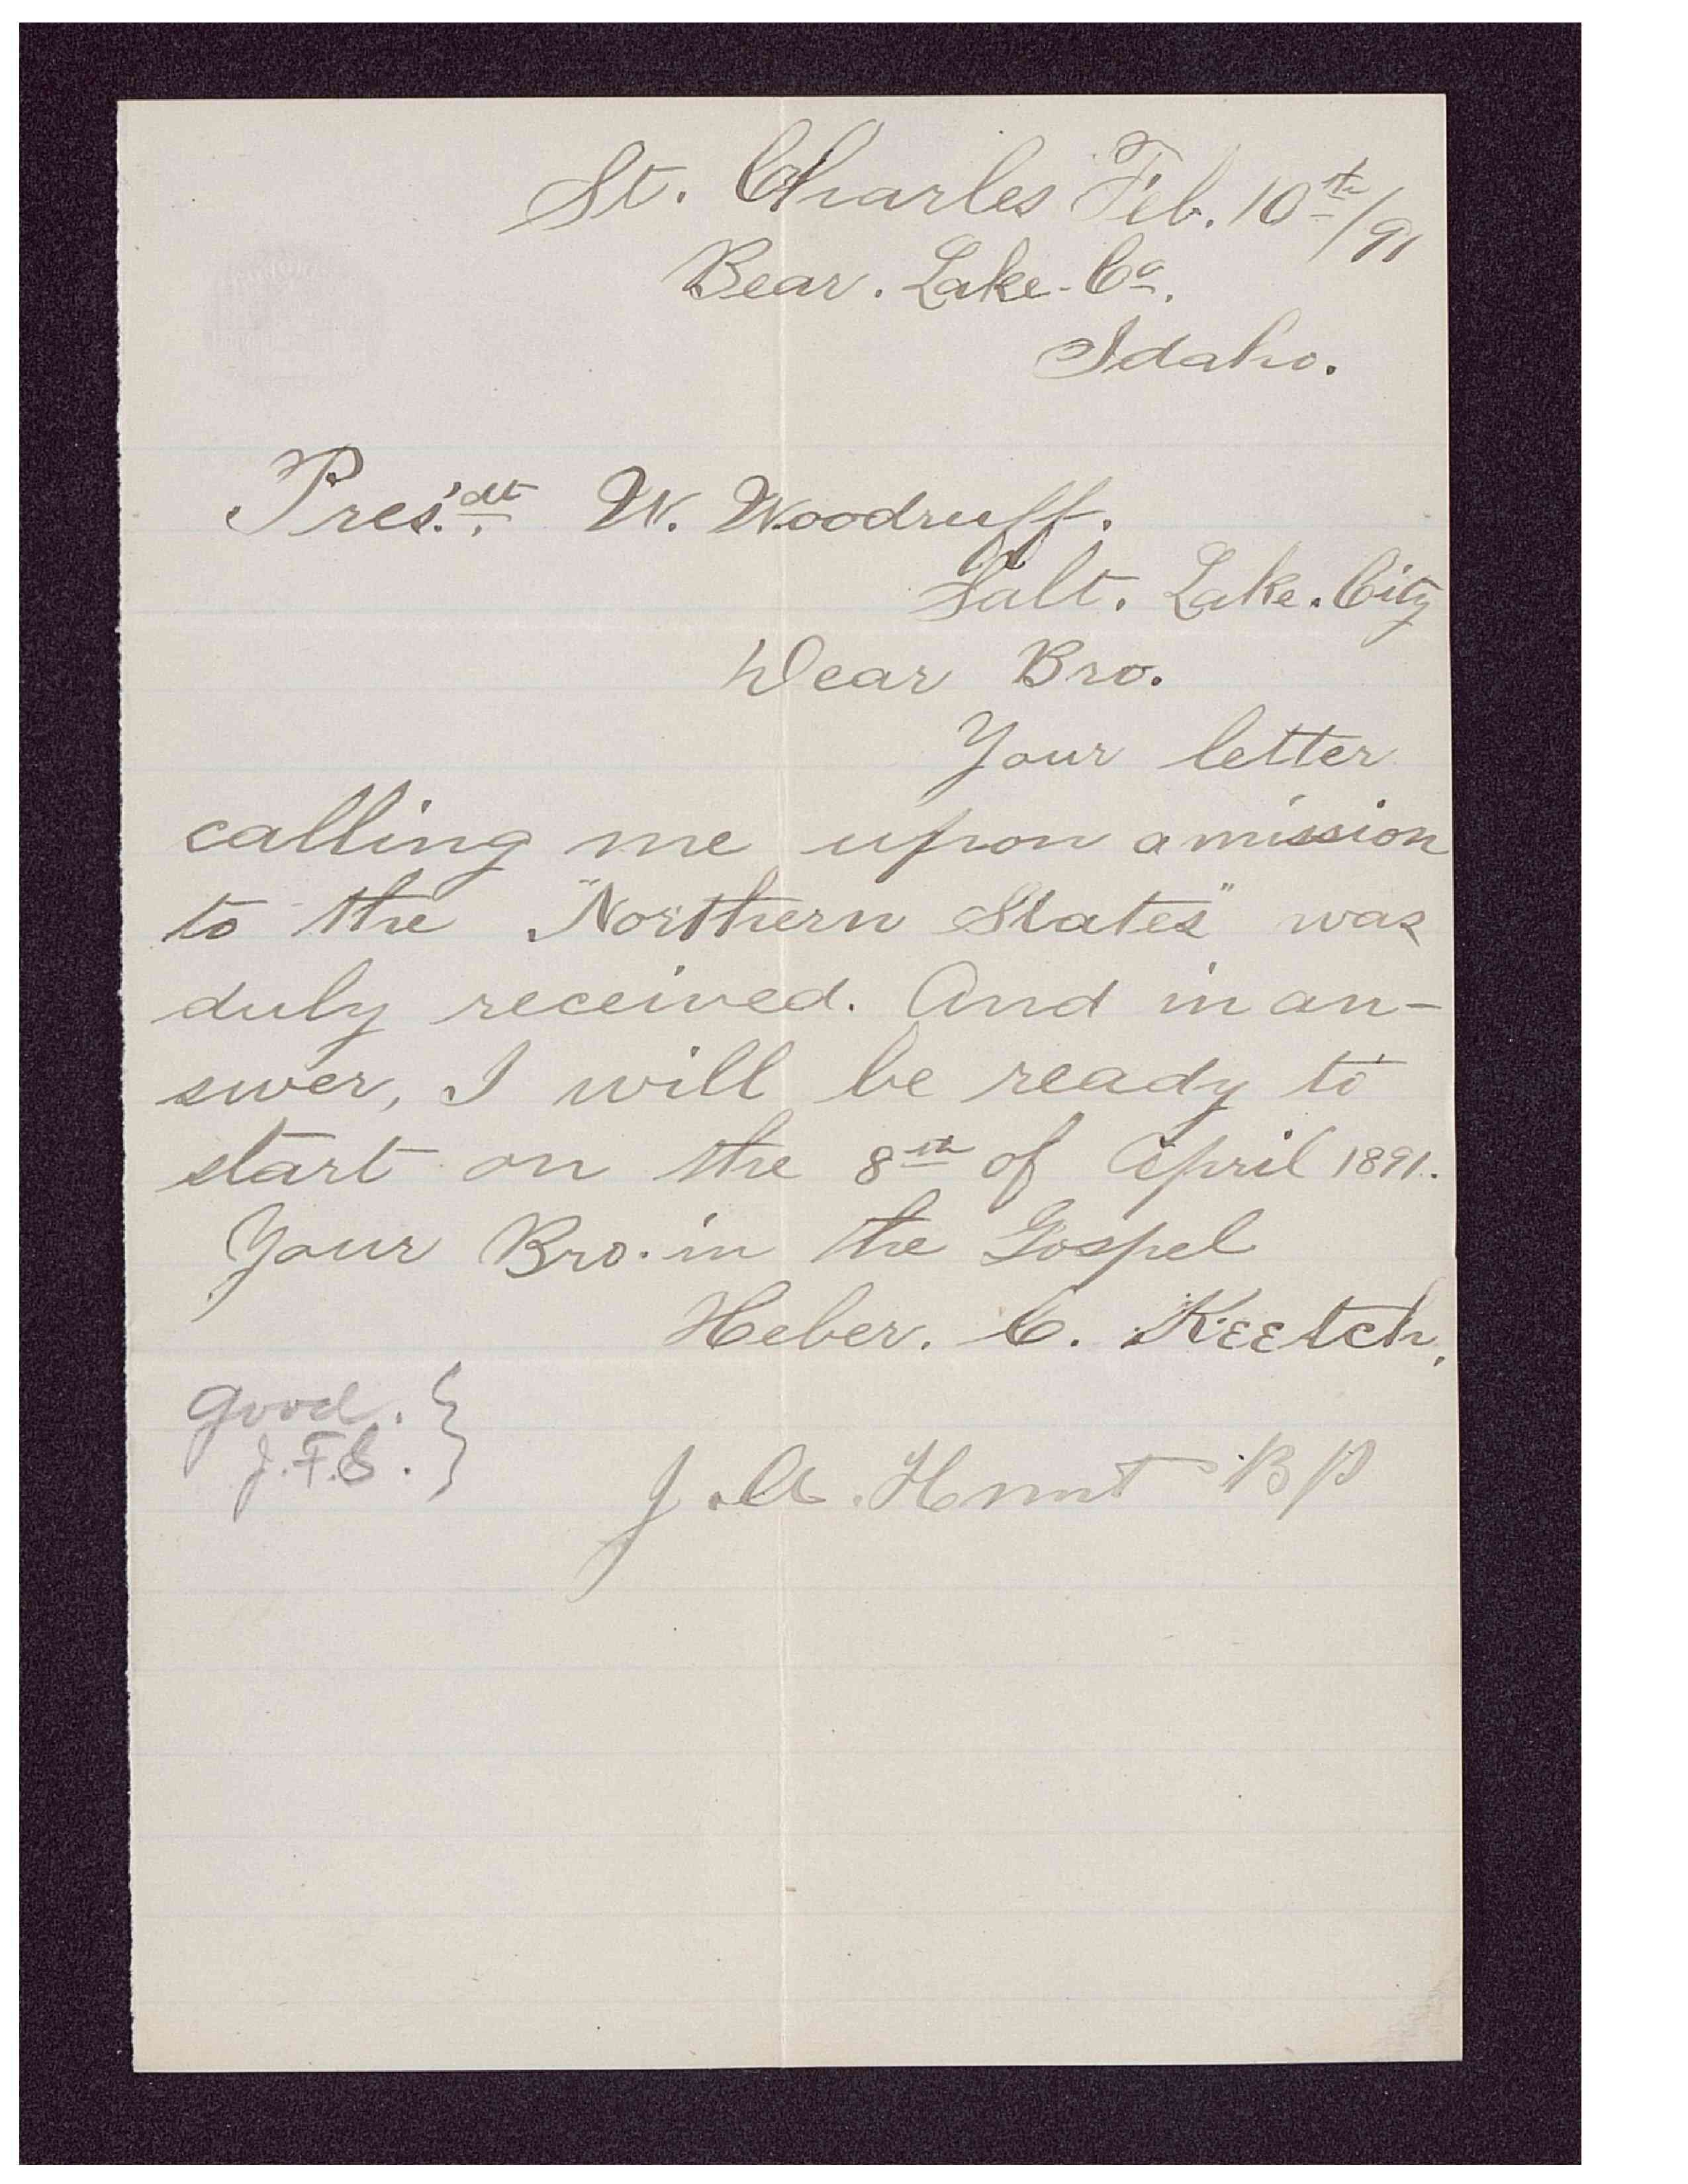 St. Charles Feb. 10th/91
Bear. Lake. Co.
Idaho.
Pres'dt. W. Woodruff.
Salt. Lake. City
Dear Bro.
Your letter
calling me upon a mission
to the "Northern States" was
duly received. And in an-
swer, I will be ready to
start on the 8th of April 1891.
Your Bro. in the Gospel
Heber. C. Keetch.
Good. }
J. F. S. }
J. A. Hunt BP